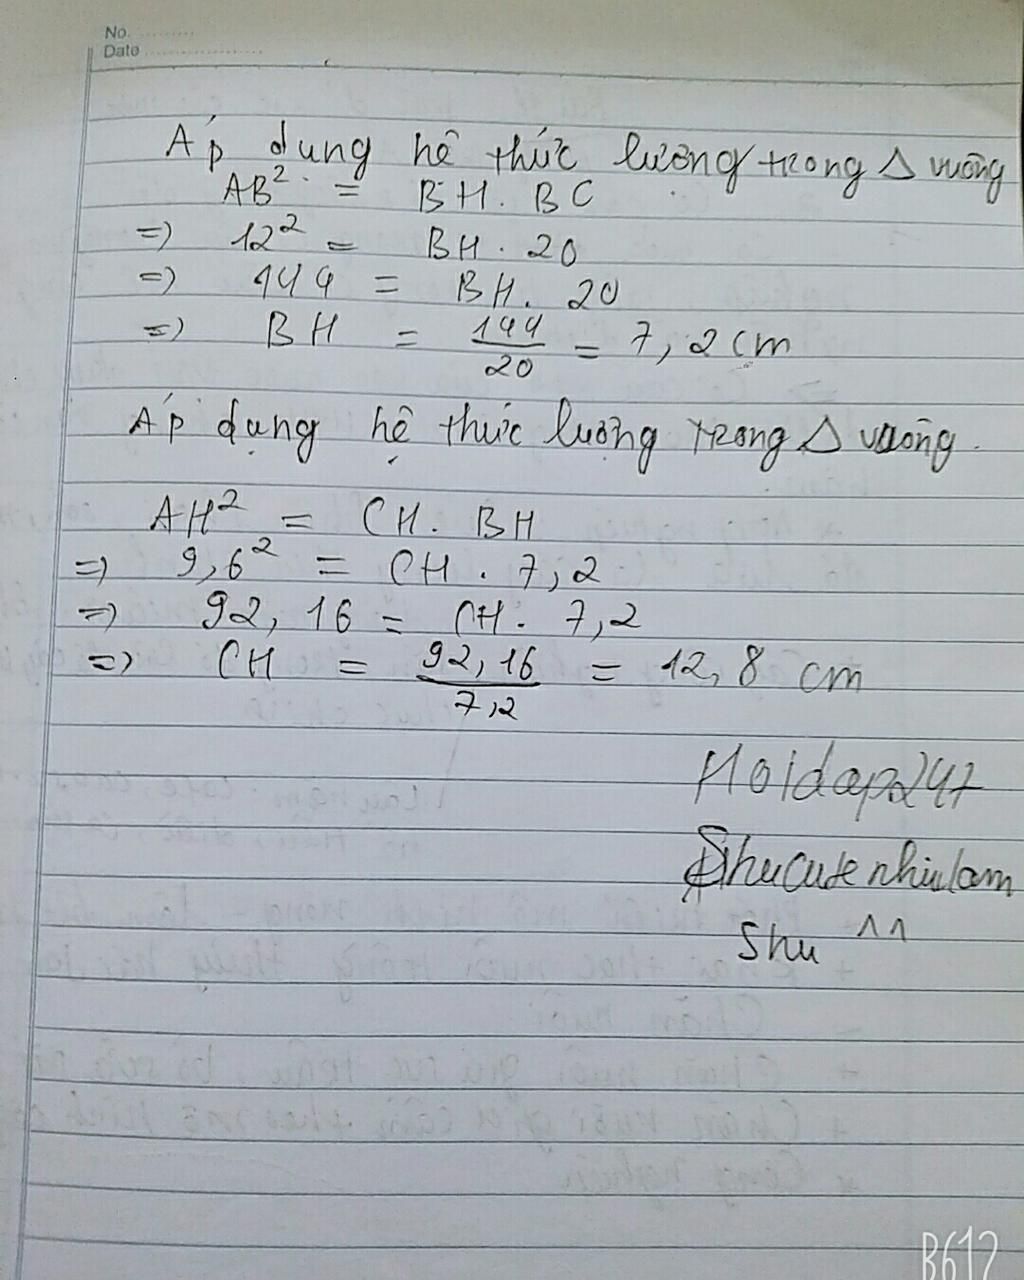 No. ............
Date ........................
Áp dụng hê thức lương trong Δ vuông
AB² = BH. BC
=> 12² = BH . 20
=> 144 = BH. 20
=> BH = 144/20 = 7,2 cm
Áp dụng hệ thức lượng trong Δ vuông.
AH² = CH. BH
=> 9,6² = CH . 7,2
=> 92,16 = CH. 7,2
=> CH = 92,16/7,2 = 12,8 cm
Hoidap247
Shu ^^
B612